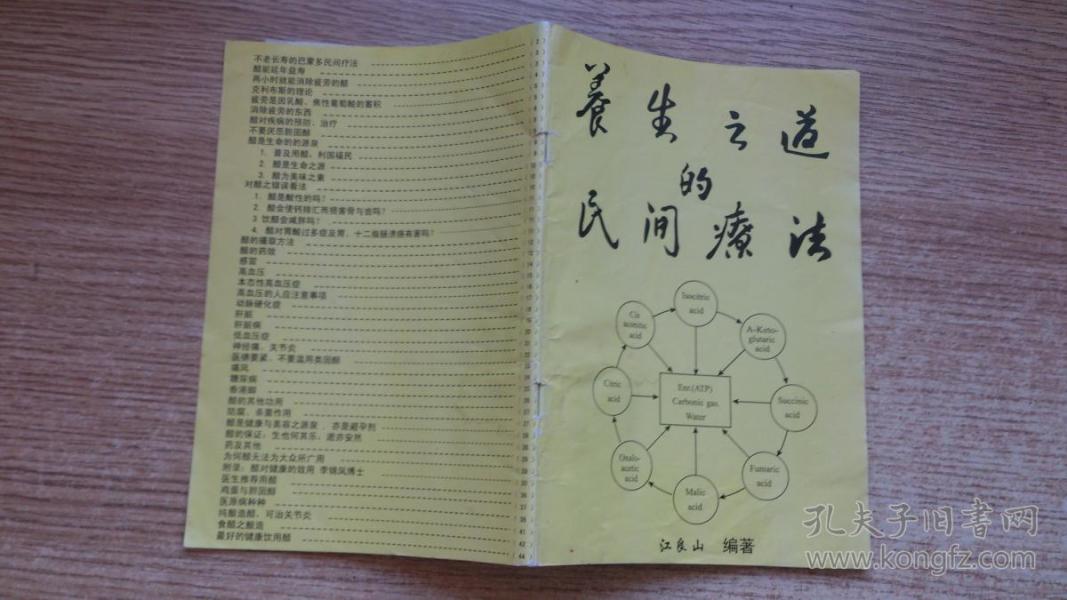 不老长寿的巴蒙多民间疗法
醋能延年益寿
两小时就能消除疲劳的醋
克利布斯的理论
疲劳是因乳酸、焦性葡萄酸的蓄积
消除疲劳的东西
醋对疾病的预防、治疗
不要厌恶胆固醇
醋是生命的的源泉
1. 普及用醋、利国福民
2. 醋是生命之源
3. 醋为美味之素
对醋之错误看法
1. 醋是酸性的吗?
2. 醋会使钙排汇而损害骨与齿吗?
3 饮醋会减胖吗?
4. 醋对胃酸过多症及胃、十二指肠溃疡有害吗?
醋的摄取方法
醋的药效
感冒
高血压
本态性高血压症
高血压的人应注意事项
动脉硬化症
肝脏
肝脏病
低血压症
神经痛、关节炎
医德要紧、不要滥用类固醇
痛风
糖尿病
香港脚
醋的其他功用
防腐、杀菌作用
醋是健康与美容之源泉，亦是避孕剂
醋的保证：生也何其乐、逝亦安然
药及其他
为何醋无法为大众所广用
附录：醋对健康的效用 李锦凤博士
医生推荐用醋
鸡蛋与胆固醇
医源病种种
纯酿造醋、可治关节炎
食醋之酿造
最好的健康饮用醋
養生之道
的
民间療法
Isocitric
acid
A-Keto-
glutaric
acid
Succinic
acid
Fumaric
acid
Malic
acid
Oxalo-
acetic
acid
Citric
acid
Cis
aconitic
acid
Ener.(ATP)
Carbonic gas.
Water
江良山 编著
孔夫子旧书网
www.kongfz.com